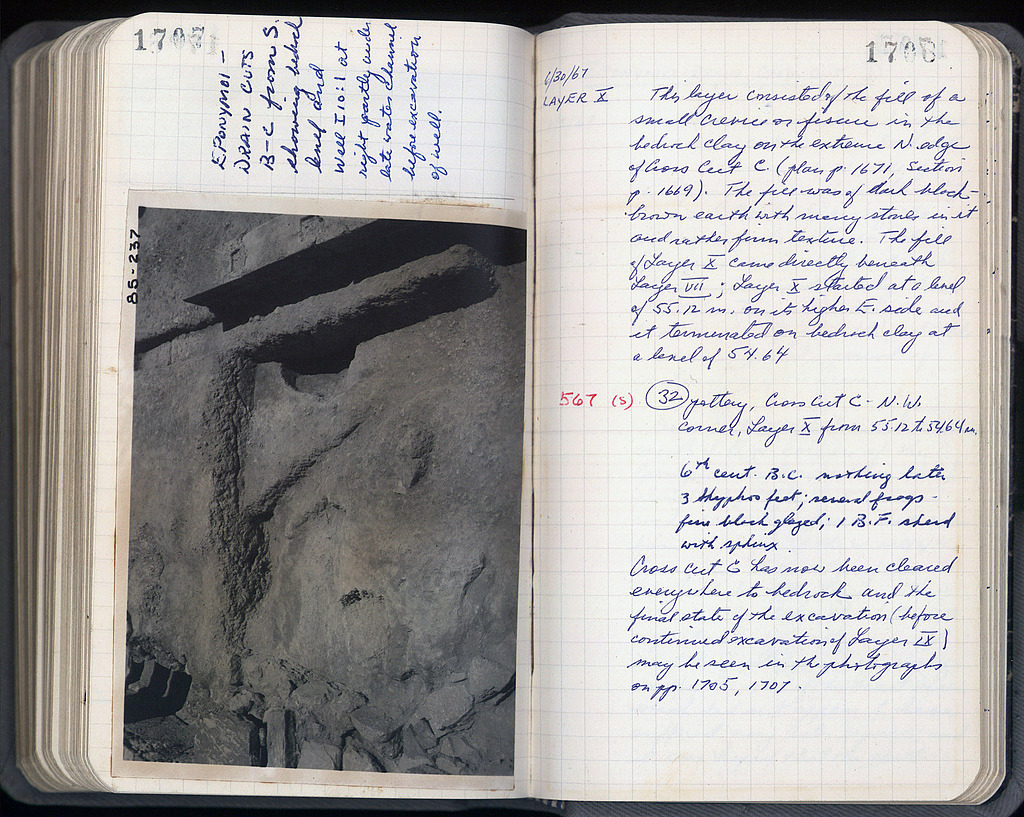 1707
EPONYMOI –
DRAIN CUTS
B–C from S.
showing bedrock
level and
Well I 10:1 at
right partly under
late water channel
before excavation
of well.
85-237
1708
6/30/67
LAYER X
This layer consisted of the fill of a
small crevice or fissure in the
bedrock clay on the extreme N. edge
of Cross Cut C (plan p. 1671, Section
p. 1669). The fill was of dark black-
brown earth with many stones in it
and rather firm texture. The fill
of Layer X came directly beneath
Layer VII; Layer X started at a level
of 55.12 m. on its higher E. side and
it terminated on bedrock clay at
a level of 54.64
567 (s) 32 pottery, Cross Cut C - N.W.
corner, Layer X from 55.12 to 54.64 m.
6th cent. B.C. nothing later
3 skyphos feet; several frags
fine black glazed; 1 B.F. sherd
with sphinx.
Cross Cut C has now been cleared
everywhere to bedrock and the
final state of the excavation (before
continued excavation of Layer IX)
may be seen in the photographs
on pp. 1705, 1707.